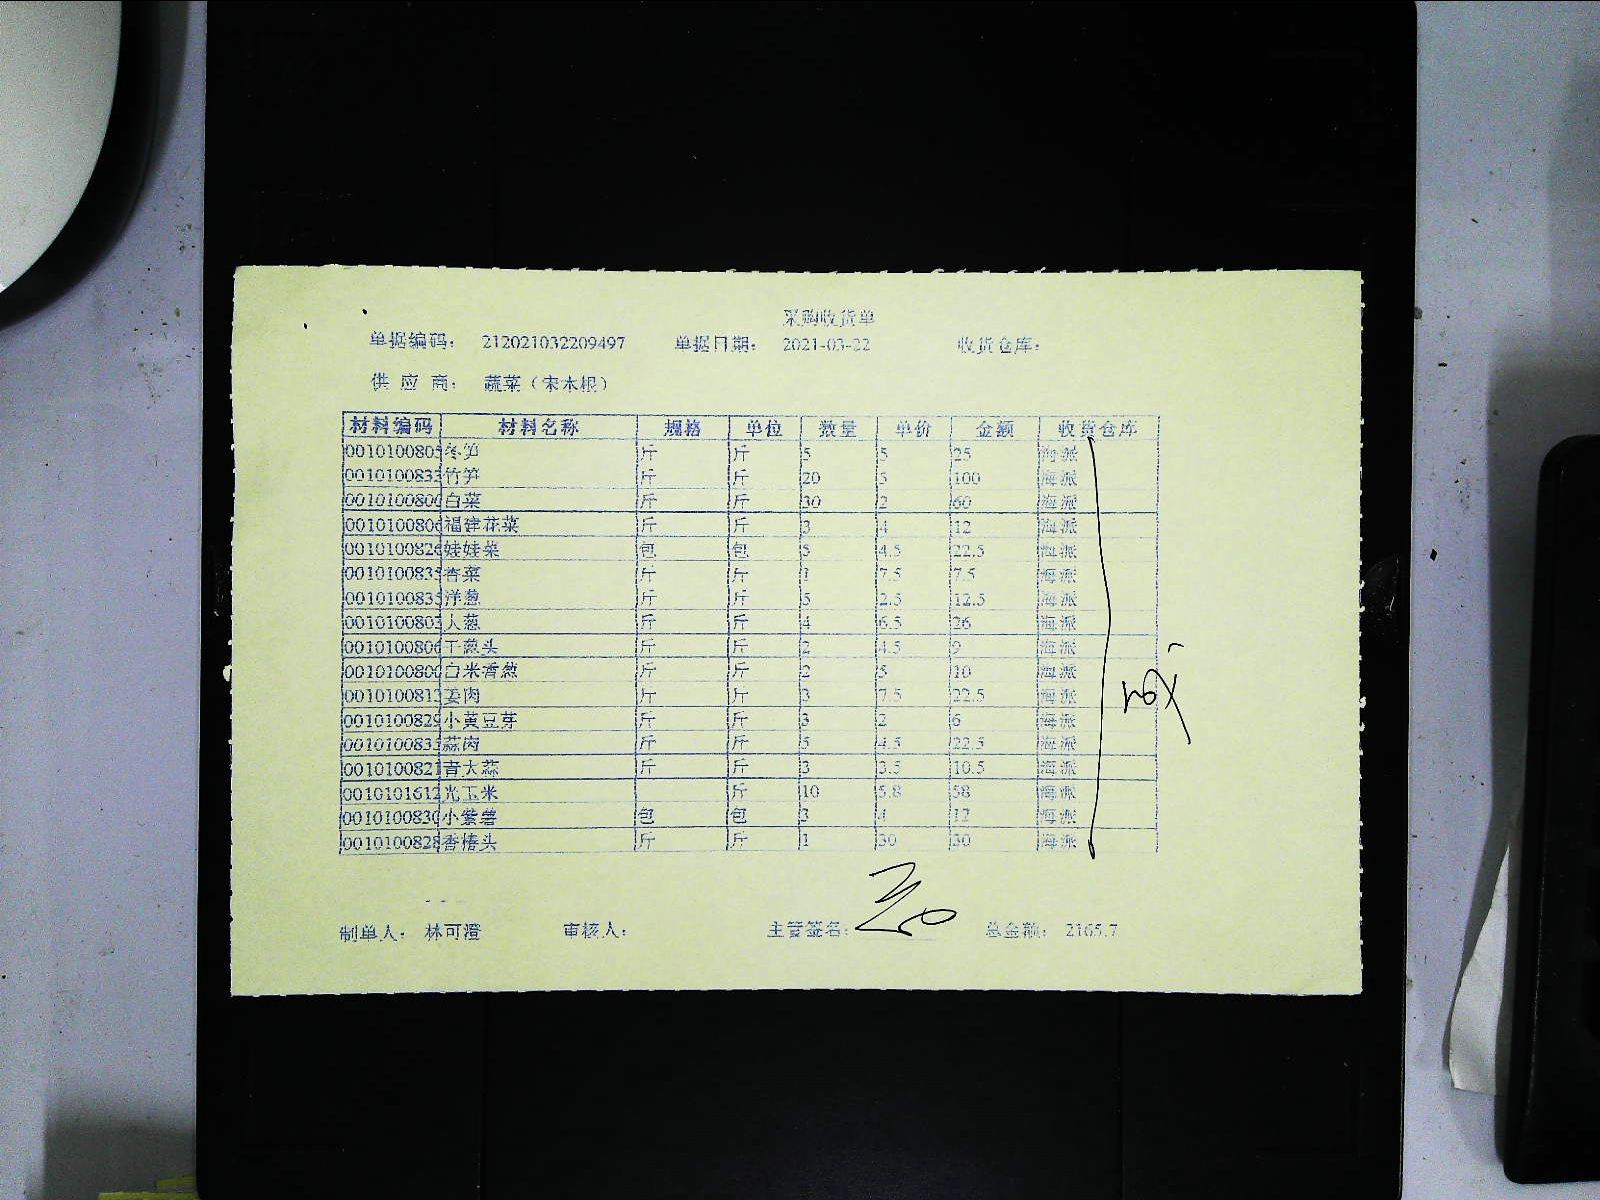 采购收货单
单据编码： 212021032209497 单据日期： 2021-03-22 收货仓库：
供 应 商： 蔬菜（宋本根）
材料编码 材料名称 规格 单位 数量 单价 金额 收货仓库
0010100805 冬笋 斤 斤 5 5 25 海派
001010083 竹笋 斤 斤 20 5 100 海派
0010100800 白菜 斤 斤 30 2 60 海派
0010100806 福建花菜 斤 斤 3 4 12 海派
0010100826 娃娃菜 包 包 5 4.5 22.5 海派
001010083 香菜 斤 斤 1 7.5 7.5 海派
001010083 洋葱 斤 斤 5 2.5 12.5 海派
0010100803 大葱 斤 斤 4 6.5 26 海派
0010100806 干葱头 斤 斤 2 4.5 9 海派
0010100800 白米香葱 斤 斤 2 5 10 海派
001010081 姜肉 斤 斤 3 7.5 22.5 海派
0010100829 小黄豆芽 斤 斤 3 2 6 海派
001010083 蒜肉 斤 斤 5 4.5 22.5 海派
0010100821 青大蒜 斤 斤 3 3.5 10.5 海派
0010101612 光玉米 斤 10 5.8 58 海派
0010100830 小紫薯 包 包 3 4 12 海派
0010100828 香椿头 斤 斤 1 30 30 海派
制单人： 林可澄 审核人： 主管签名： 总金额： 2165.7